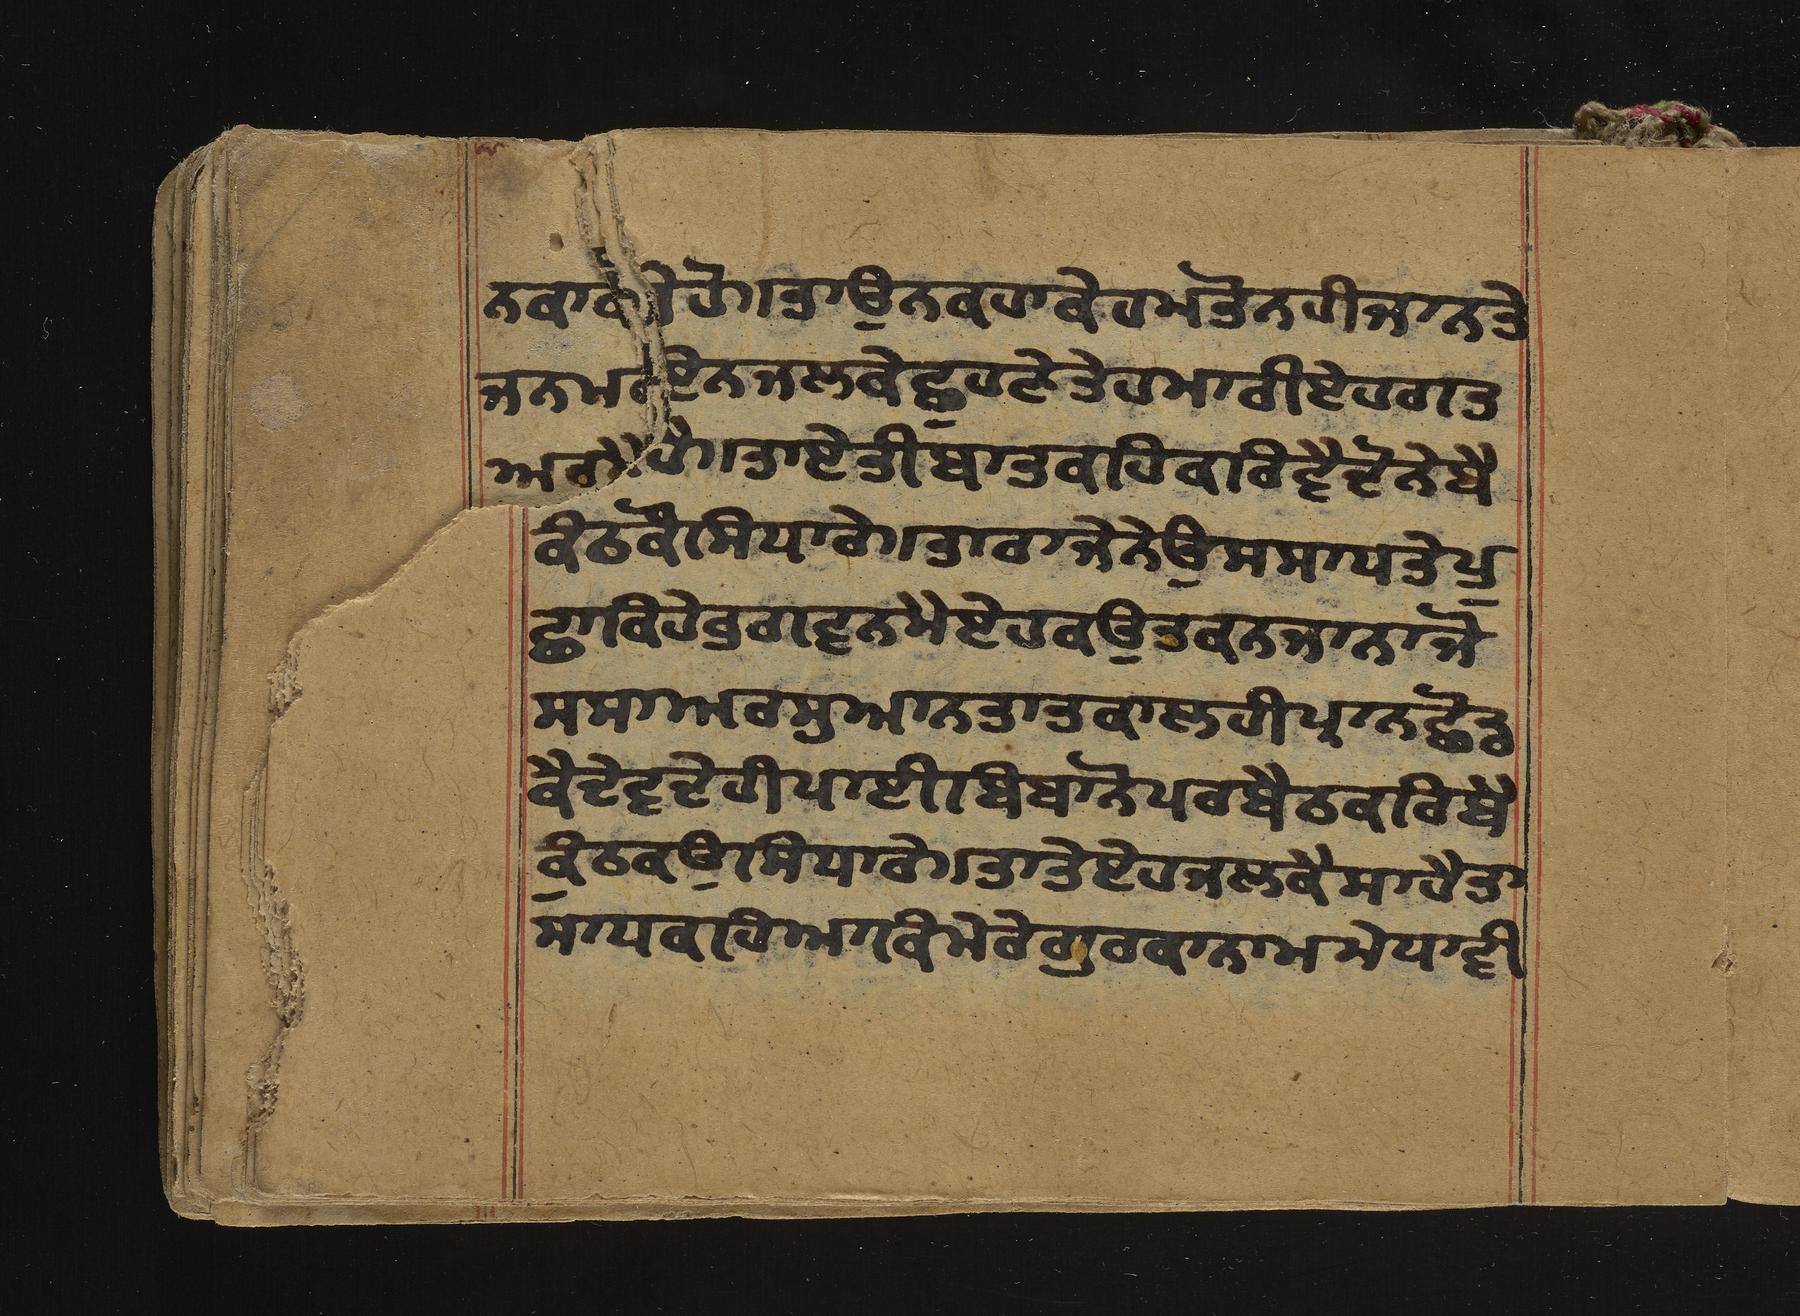 ਨਕਾਕੀਹੌ।ਤਾਉਨਕਹਾਕੇਹਮਤੋਨਹੀਜਾਨਤੇ
ਜਨਮ ਏਨਜਲਕੇਛੁਹਣੇਤੇਹਮਾਰੀਏਹਗਤ
ਅ ਹੈ।ਤਾਏਤੀਬਾਤਕਹਿਕਰਿਦ੍ਵੈਦੋਨੇਬੈ
ਕੰਠਕੌਸਿਧਾਰੇ।ਤਾਰਾਜੇਨੇਉਸਸਾਧਤੇਪੁ
ਛਾਕਿਹੇਭਗਵਨਮੈਏਹਕਉਤਕਨਜਾਨਾਜੋ
ਸਸਾਅਰਸੁਆਨਤਾਤਕਾਲਹੀਪ੍ਰਾਨਛੋਡ
ਕੈਦੇਵਦੇਹੀਪਾਈ।ਬਿਬਾਨੋਪਰਬੈਠਕਰਿਬੈ
ਕੁੰਠਕਉਸਿਧਾਰੇ।ਤਾਤੇਏਹਜਲਕੈਸਾਹੈਤਾ
ਸਾਧਕਹਿਆਕਿਮੇਰੇਗੁਰਕਾਨਾਮਮੇਧਾਵੀ